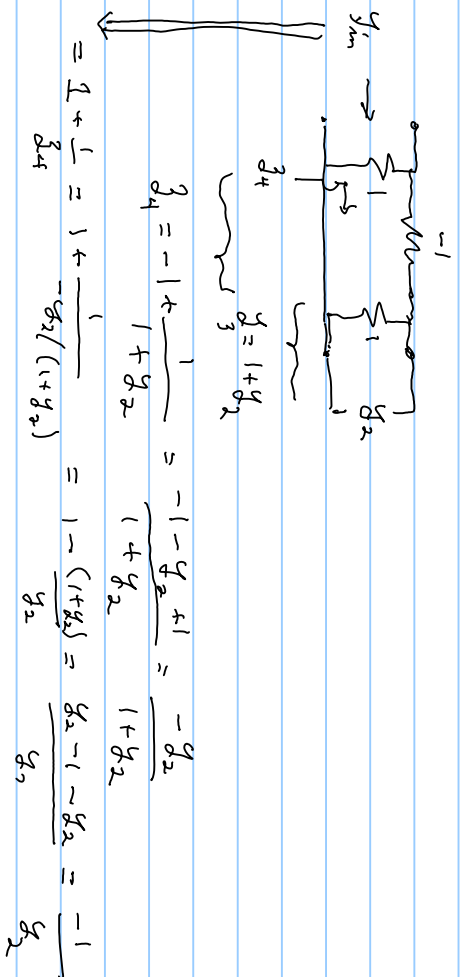 -1
y_in → 1 1 y_2
z_4 y_3 = 1 + y_2
z_4 = -1 + 1/(1 + y_2) = (-1 - y_2 + 1)/(1 + y_2) = -y_2/(1 + y_2)
= 1 + 1/z_4 = 1 + 1/(-y_2/(1 + y_2)) = 1 - (1 + y_2)/y_2 = (y_2 - 1 - y_2)/y_2 = -1/y_2